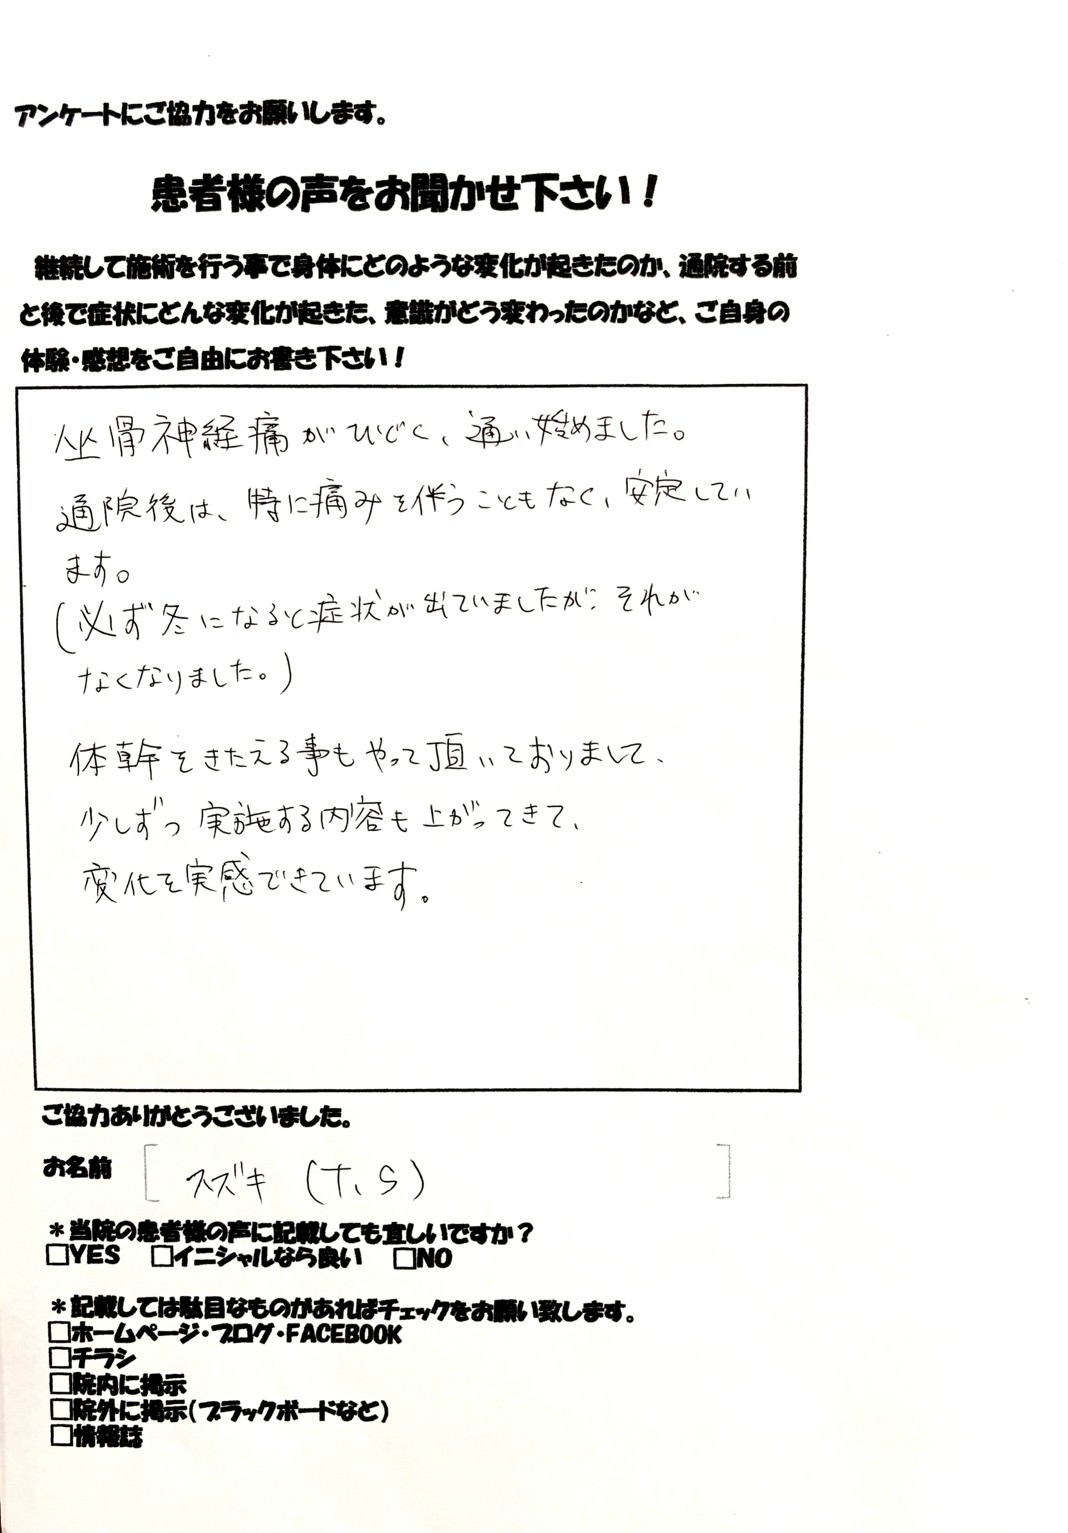 アンケートにご協力をお願いします。
患者様の声をお聞かせ下さい！
継続して施術を行う事で身体にどのような変化が起きたのか、通院する前
と後で症状にどんな変化が起きた、意識がどう変わったのかなど、ご自身の
体験・感想をご自由にお書き下さい！
坐骨神経痛がひどく、通い始めました。
通院後は、特に痛みを伴うこともなく、安定してい
ます。
(必ず冬になると症状が出ていましたが、それが
なくなりました。)
体幹をきたえる事もやって頂いておりまして、
少しずつ実施する内容も上がってきて、
変化を実感できています。
ご協力ありがとうございました。
お名前 スズキ (T、S)
＊当院の患者様の声に記載しても宜しいですか？
□YES □イニシャルなら良い □NO
＊記載しては駄目なものがあればチェックをお願い致します。
□ホームページ・ブログ・FACEBOOK
□チラシ
□院内に掲示
□院外に掲示(ブラックボードなど)
□情報誌